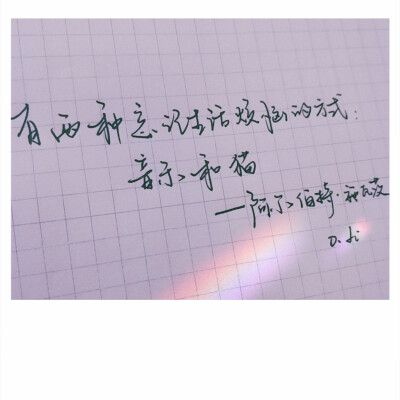 有两种忘记生活烦恼的方式：
音乐和猫
——阿尔伯特·施瓦茨
D. di